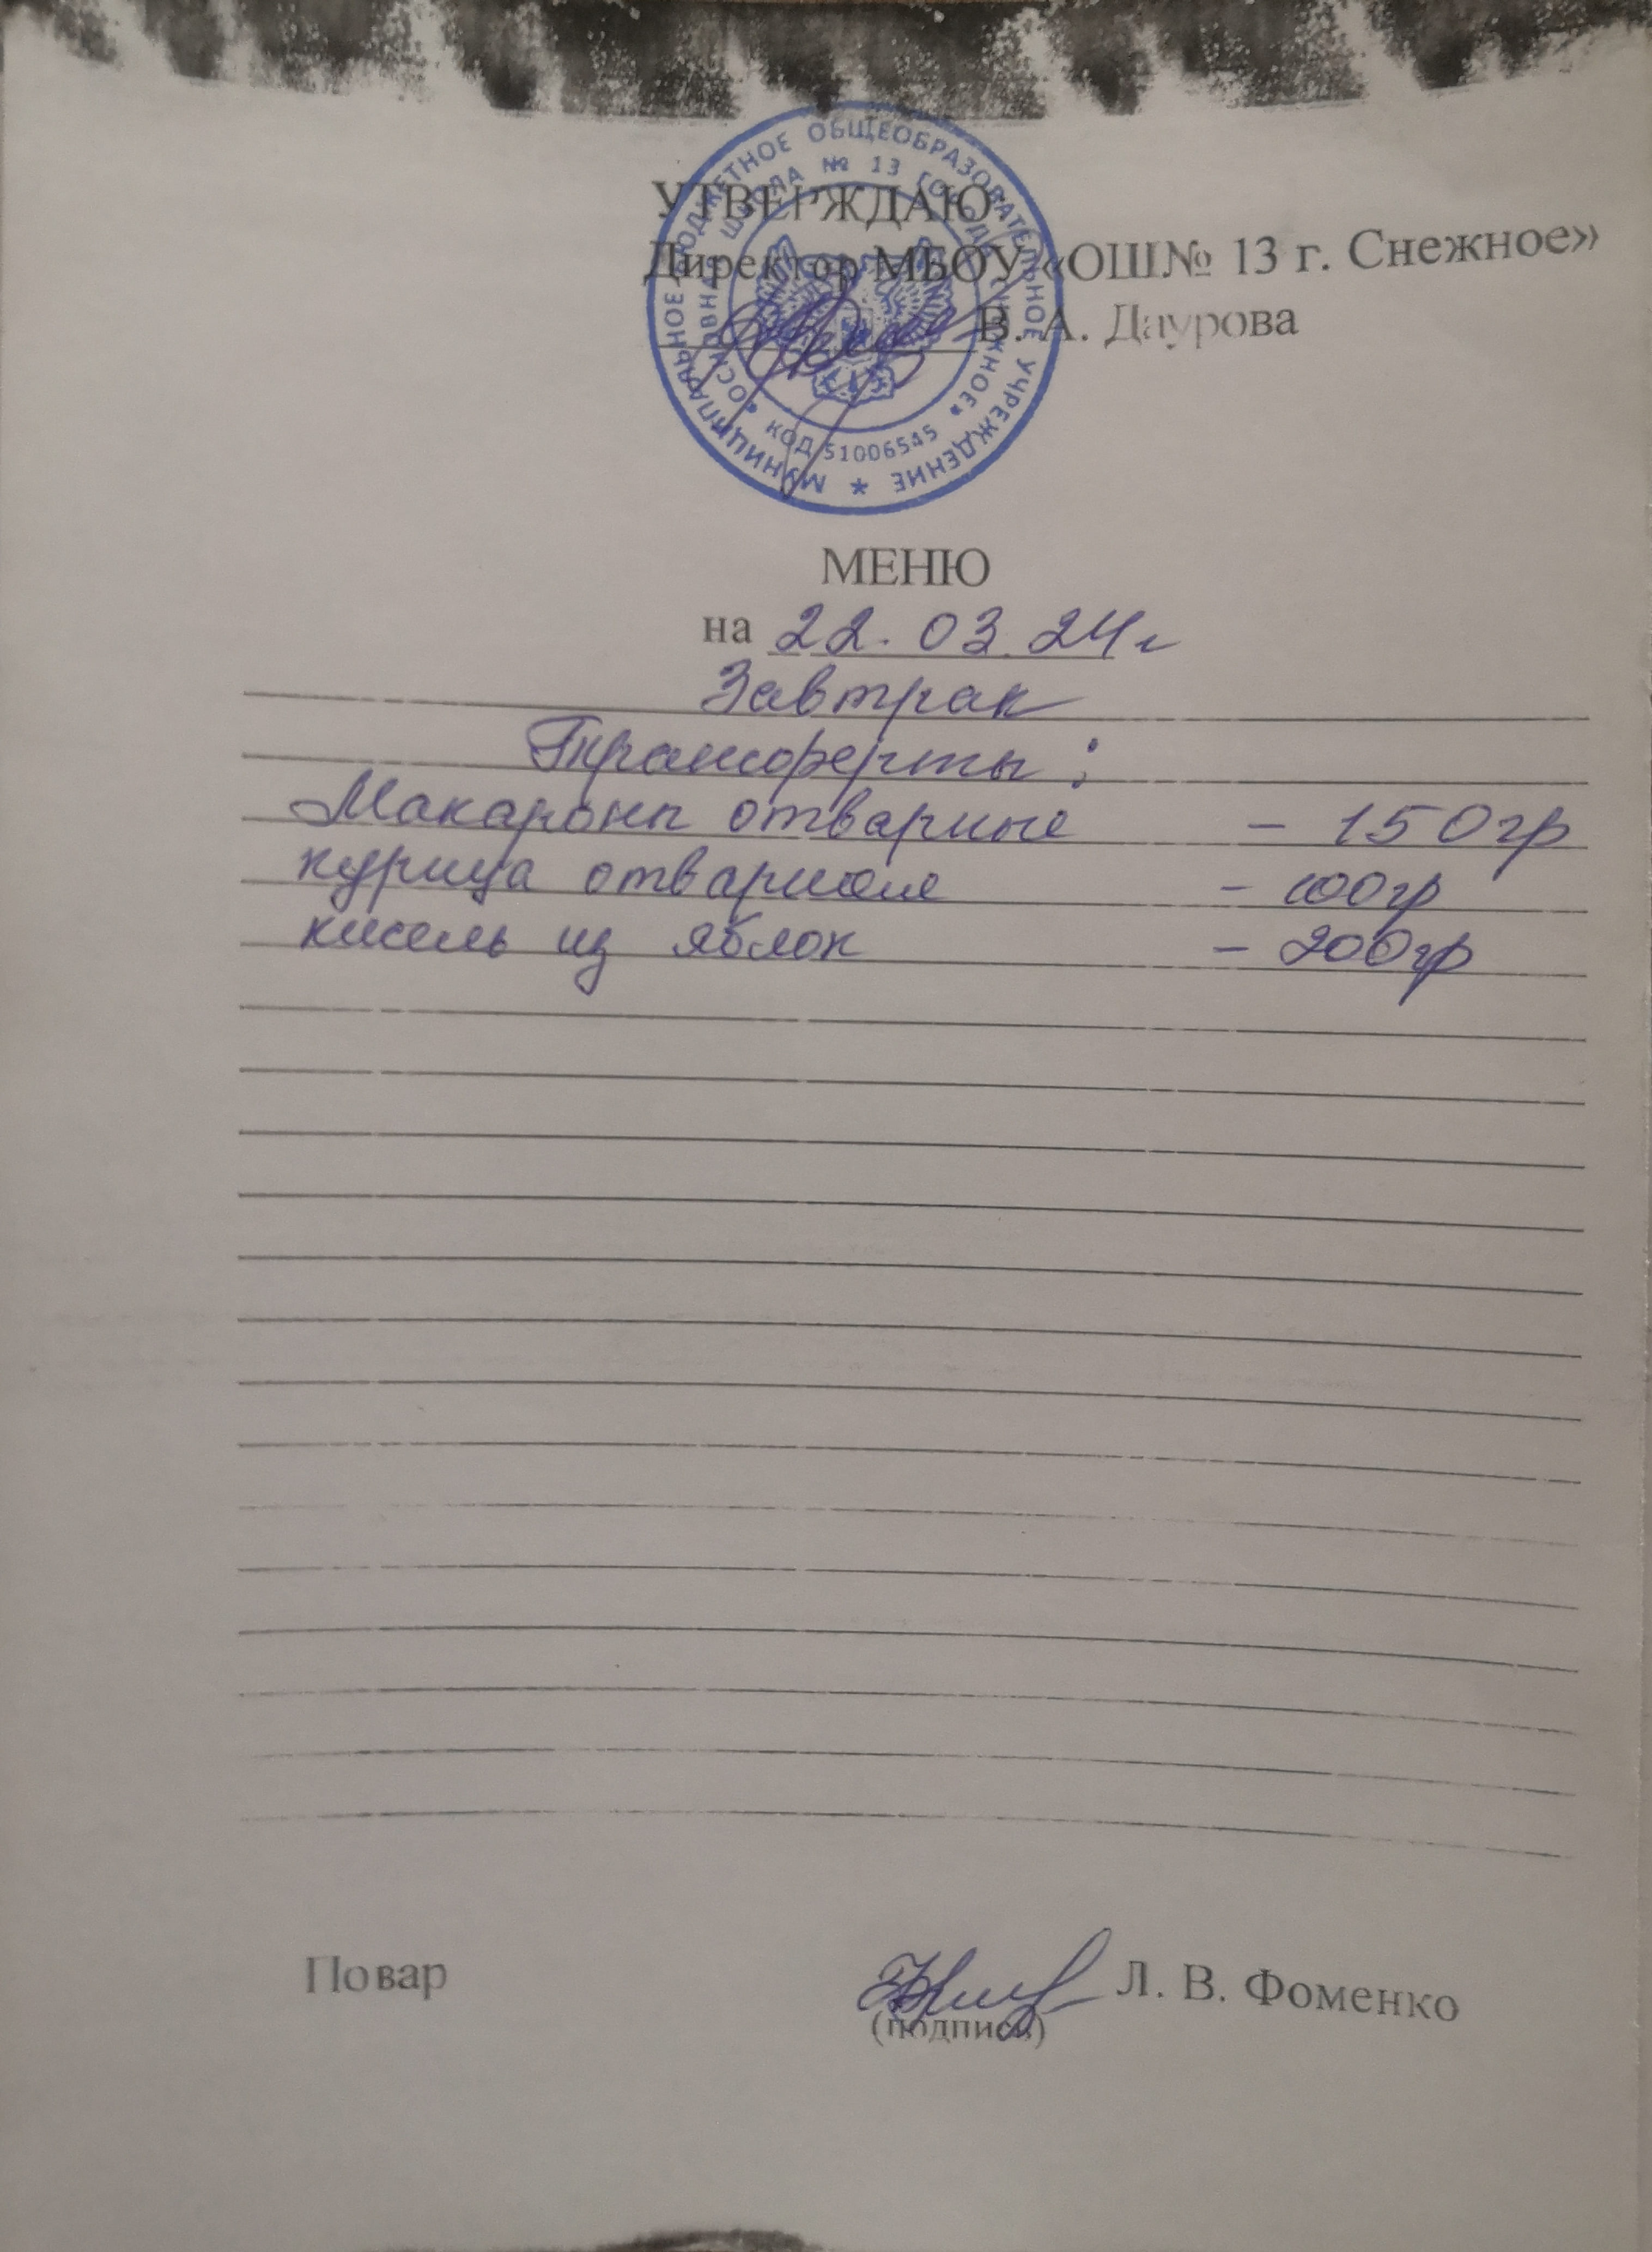 УТВЕРЖДАЮ:
Директор МБОУ «ОШ№ 13 г. Снежное»
В. А. Даурова
МУНИЦИПАЛЬНОЕ БЮДЖЕТНОЕ ОБЩЕОБРАЗОВАТЕЛЬНОЕ УЧРЕЖДЕНИЕ *
«ОСНОВНАЯ ШКОЛА № 13 ГОРОДА СНЕЖНОЕ»
КОД 51006545
МЕНЮ
на 22.03.24г
Завтрак
Трансферты:
Макароны отварные - 150гр
курица отварная - 100гр
кисель из яблок - 200гр
Повар Л. В. Фоменко
(подпись)